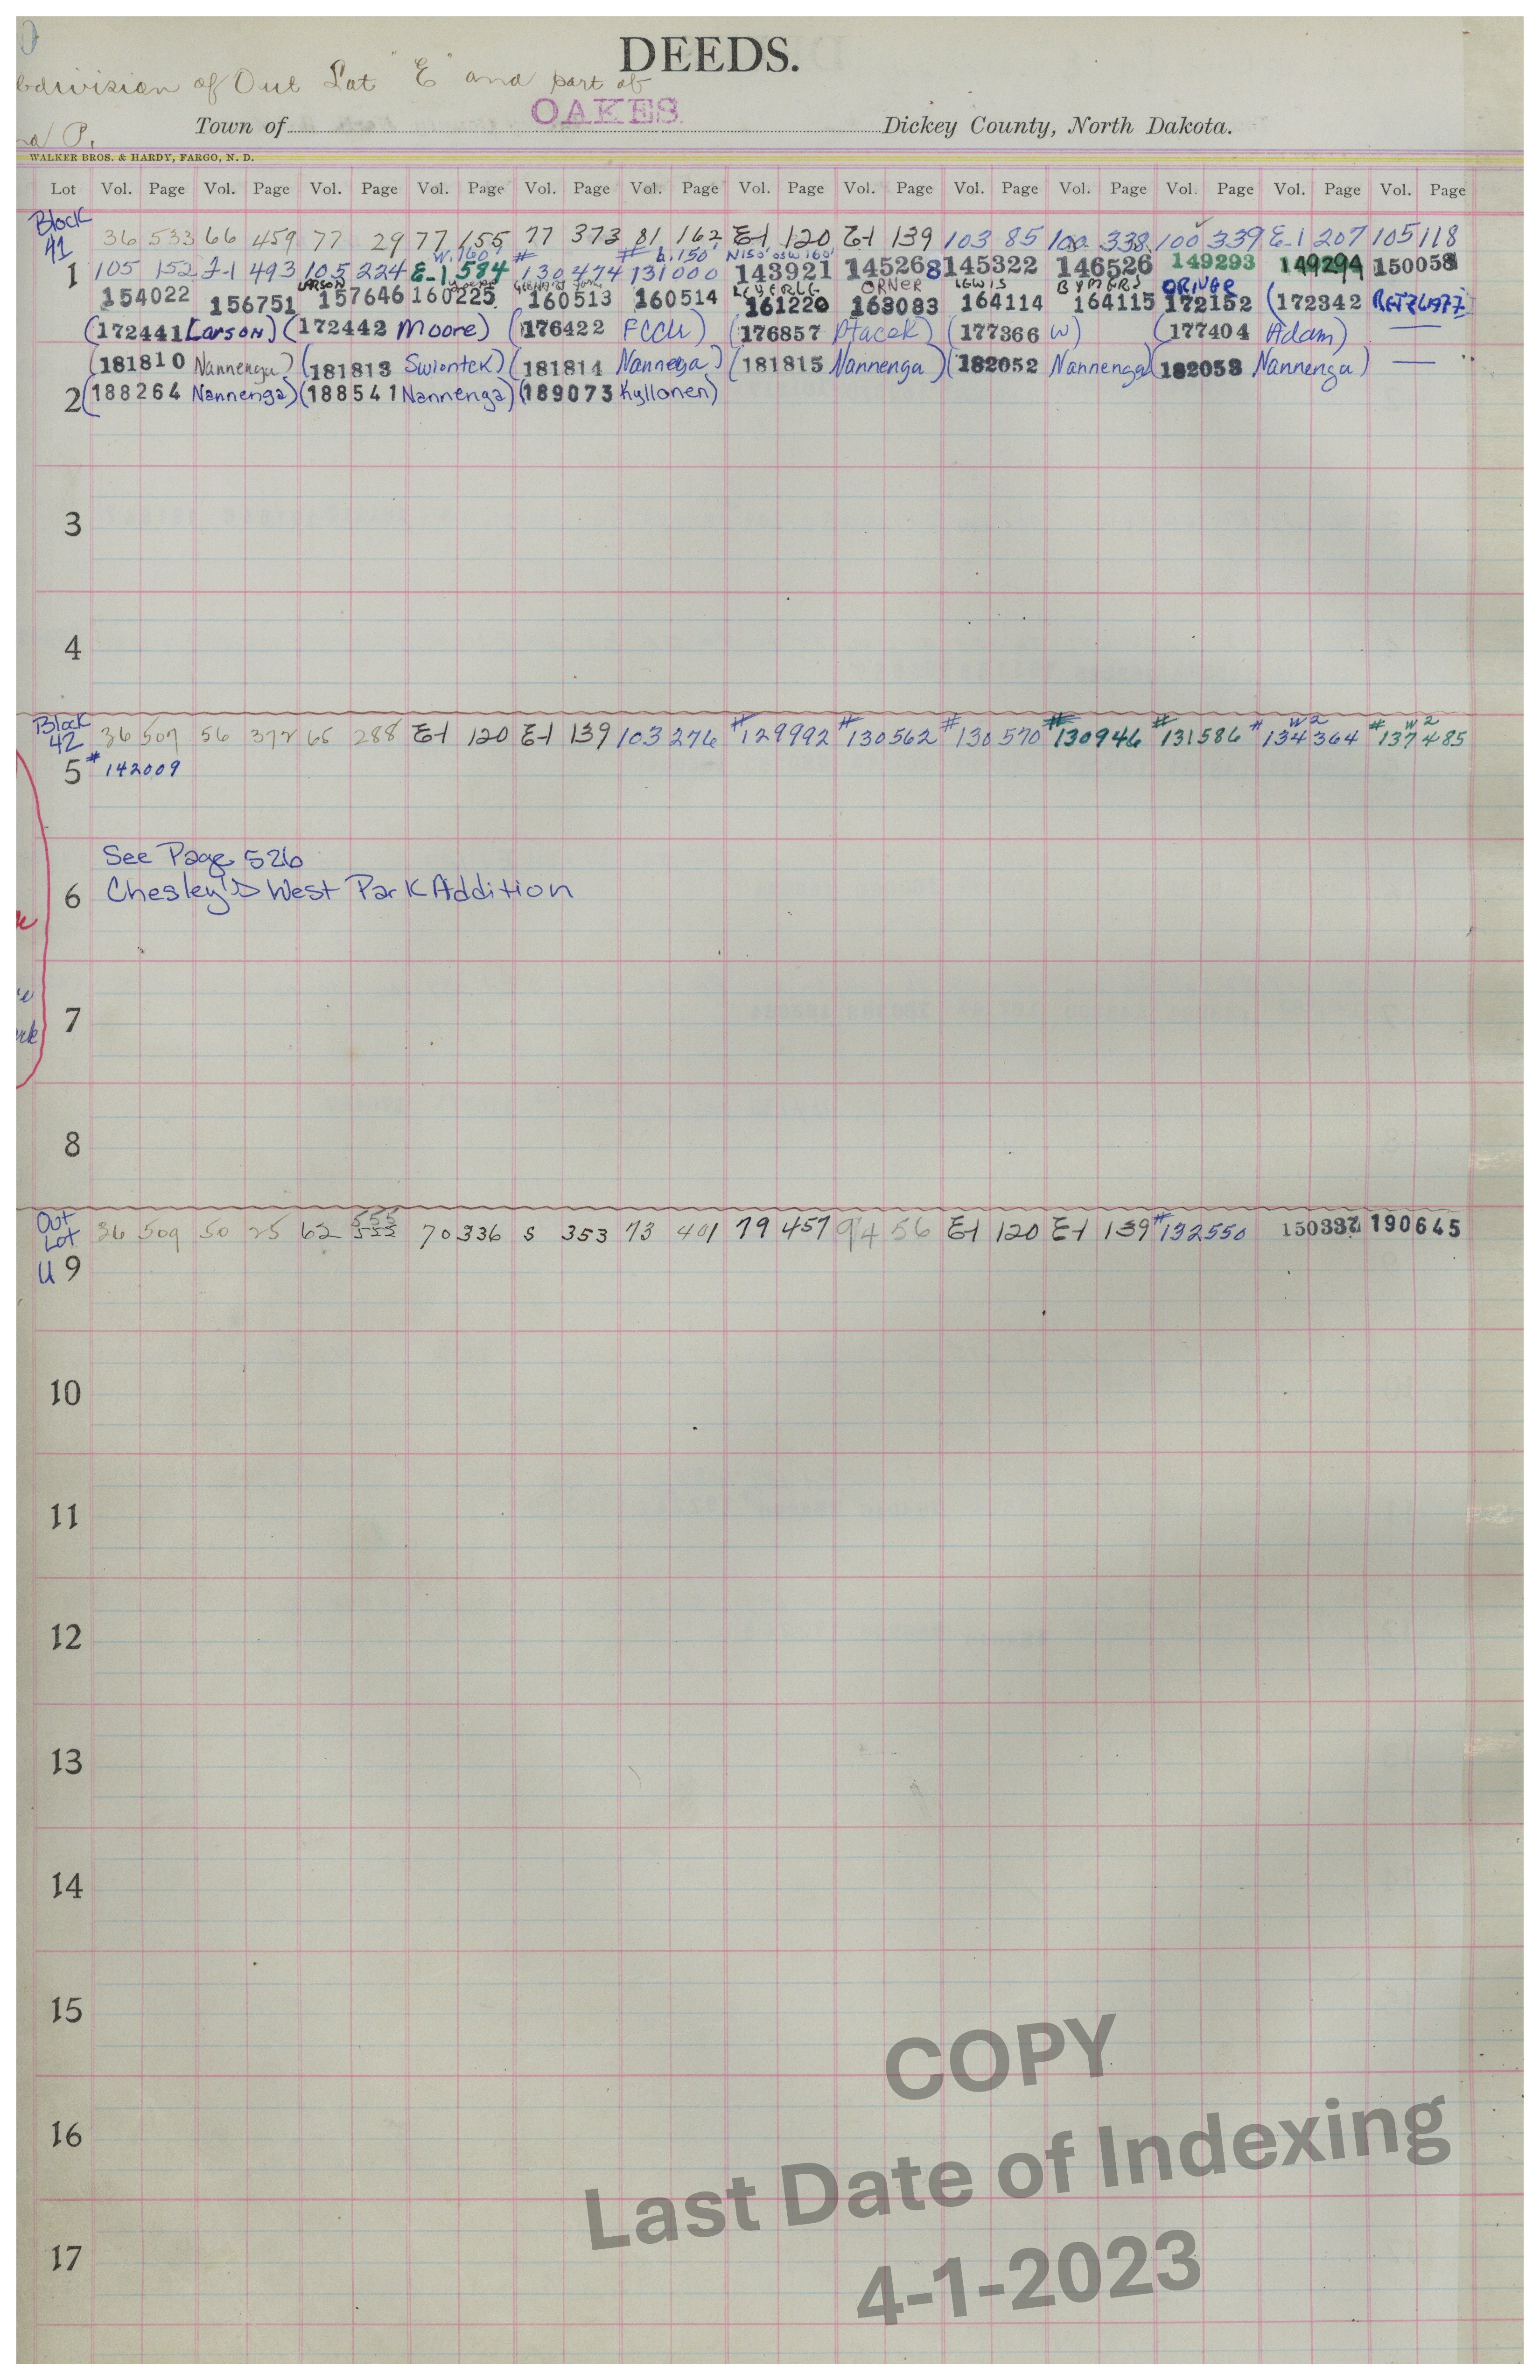 DEEDS.
bdivision of Out Lot "E" and part of
OAKES
Town of Dickey County, North Dakota.
d P.
WALKER BROS. & HARDY, FARGO, N. D.
Lot Vol. Page Vol. Page Vol. Page Vol. Page Vol. Page Vol. Page Vol. Page Vol. Page Vol. Page Vol. Page Vol. Page Vol. Page Vol. Page
Block 41
36 533 66 459 77 29 77 155 77 373 81 162 E-1 120 E-1 139 103 85 100 338 100 339 E-1 207 105 118
W. 160' # # b. 150' N150' of W160'
1 105 152 493 105 224 E-1 584 130 474 131000 143921 145268 145322 146526 149293 149294 150058
LARSON ORNER LEWIS BYMERS ORINGR
154022 156751 157646 160225 160513 160514 161220 163083 164114 164115 172152 (172342
(172441 Larson) (172442 Moore) (176422 FCCU) (176857 Ptacek) (177366 W) (177404 Adam)
(181810 Nannenga) (181813 Swiontek) (181814 Nannenga) (181815 Nannenga) (182052 Nannenga) (182053 Nannenga)
2 (188264 Nannenga) (188541 Nannenga) (189073 Kyllonen)
3
4
Block 42
W2 W2
36 507 56 372 65 288 E-1 120 E-1 139 103 276 #129992 #130562 #130570 #130946 #131586 #134364 #137485
5 #142009
See Page 526
6 Chesley's West Park Addition
7
8
Out Lot U
36 509 50 25 62 555 70 336 S 353 73 401 79 457 94 56 E-1 120 E-1 139 #132550 150337 190645
9
10
11
12
13
14
15
16
17
COPY
Last Date of Indexing
4-1-2023